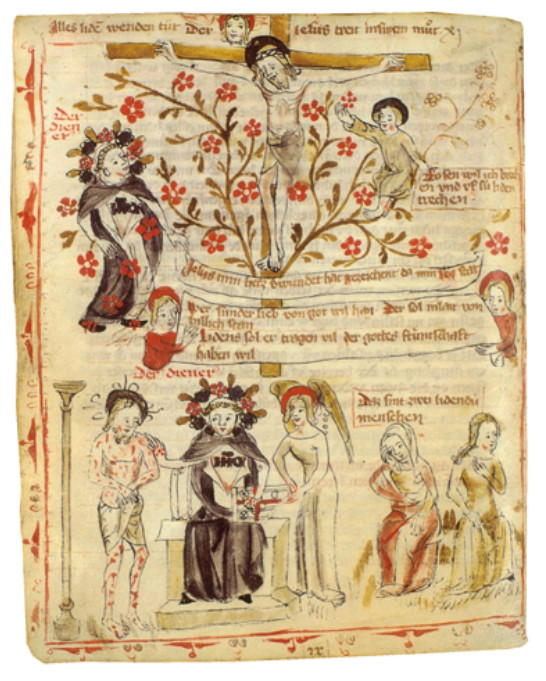 Alles lidē wenden tůt Der Jesus treit in sinem můt
Der
dien
er
Rosen wil ich brech
en vnd vf sú liden
trechen
Jesus min herz hat gezeichent da min
Wer sunder lieb von got wil han Der sol
stan
Lidens sol er tragen vil der gottes frúntschaft
haben wil
Der diener
Daz sint zwei lidendú
menschen